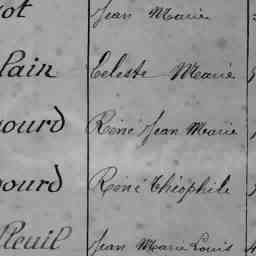 ot Jean Marie
lain Celeste Marie
gourd René Jean Marie
gourd René Théophile
lleuil Jean Marie Louis